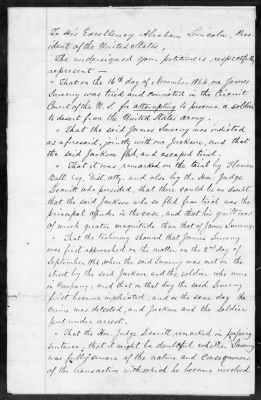 To His Excellency Abraham Lincoln, Pres-
ident of the United States,
The undersigned your petitioners respectfully
represent —
" That on the 16th day of November 1864, one James
Sweeny was tried and convicted in the Circuit
Court of the U. S. for attempting to procure a soldier
to desert from the United States army.
" That the said James Sweeny was indicted
as aforesaid, jointly with one Jackson, and that
the said Jackson fled, and escaped trial.
" That it was remarked on the trial by Flamen
Ball Esq. Dist. atty. and also by the Hon. Judge
Leavitt who presided, that there could be no doubt
that the said Jackson who fled from trial was the
principal offender in the case, and that his guilt was
of much greater magnitude than that of James Sweeny.
" That the testimony showed that James Sweeny
was first approached on the matter on the 2nd day of
September 1864 when the said Sweeny was met on the
street by the said Jackson and the soldier who were
in Company; and that on that day the said Sweeny
first became implicated, and on the same day the
crime was detected, and Jackson and the Soldier
put under arrest.
" That the Hon. Judge Leavitt remarked in passing
sentence, that it might be doubtful whether Sweeny
was fully aware of the nature and consequences
of the transaction with which he became involved